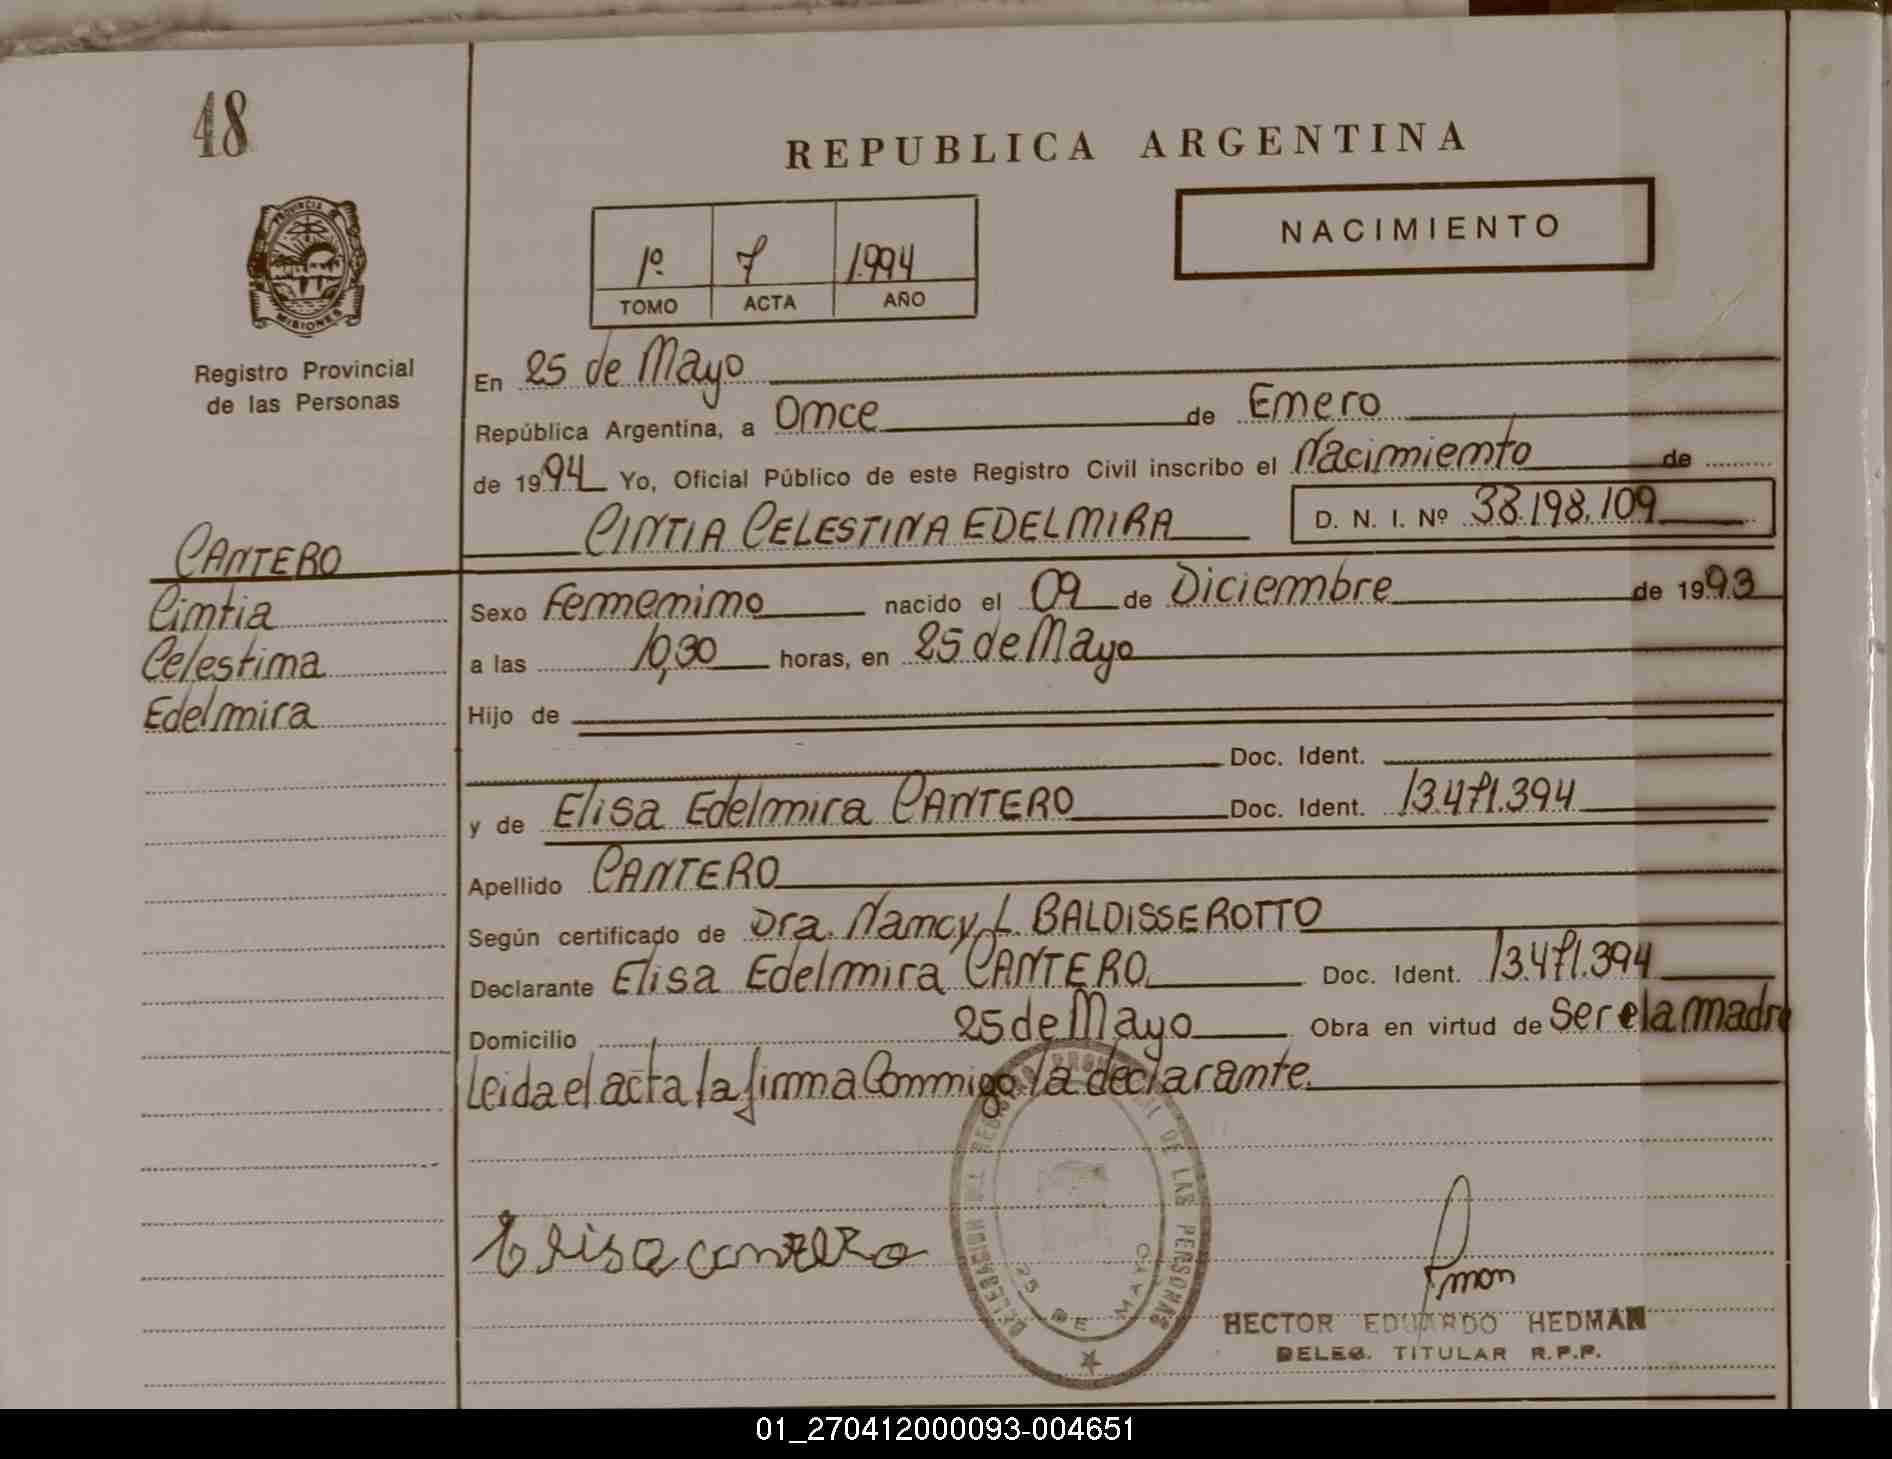 48
REPUBLICA ARGENTINA
PROVINCIA DE
MISIONES
Registro Provincial
de las Personas
NACIMIENTO
1º 7 1994
TOMO ACTA AÑO
En 25 de Mayo
República Argentina, a Once de Enero
de 1994 Yo, Oficial Público de este Registro Civil inscribo el Nacimiento de
CINTIA CELESTINA EDELMIRA D. N. I. Nº 38.198.109
CANTERO
Cintia
Celestina
Edelmira
Sexo Femenino nacido el 09 de Diciembre de 1993
a las 10,30 horas, en 25 de Mayo
Hijo de
Doc. Ident.
y de Elisa Edelmira CANTERO Doc. Ident. 13.471.394
Apellido CANTERO
Según certificado de Dra. Nancy L. BALDISSEROTTO
Declarante Elisa Edelmira CANTERO Doc. Ident. 13.471.394
Domicilio 25 de Mayo Obra en virtud de ser la madre
Leida el acta la firma Conmigo la declarante.
DELEGACION DEL REGISTRO PROVINCIAL DE LAS PERSONAS
25 DE MAYO
Elisa Cantero
HECTOR EDUARDO HEDMAN
DELEG. TITULAR R.P.P.
01_270412000093-004651